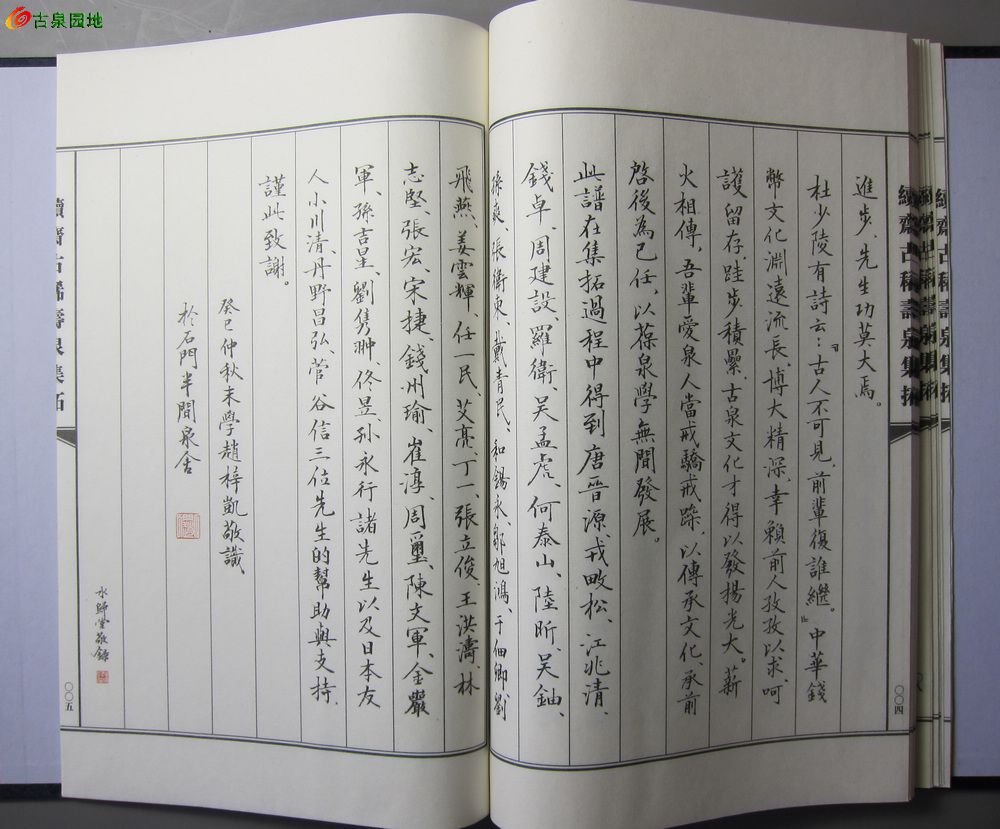 古泉园地
進步、先生功莫大焉。
杜少陵有詩云：「古人不可見，前輩復誰繼。」中華錢
幣文化淵遠流長、博大精深，幸賴前人孜孜以求、呵
護留存，跬步積纍，古泉文化才得以發揚光大。薪
火相傳，吾輩愛泉人當戒驕戒躁，以傳承文化、承前
啓後為己任，以葆泉學無間發展。
此譜在集拓過程中得到唐晉源、戎畋松、江兆清、
錢卓、周建設、羅衛、吳孟虎、何泰山、陸昕、吳鈾、
孫爽、張衛東、戴青民、和錫永、鄒旭鴻、于佃卿、劉
飛燕、姜雲輝、任一民、艾亮、丁一、張立俊、王洪濤、林
志堅、張宏、宋捷、錢州瑜、崔淳、周璽、陳文軍、金嚴
軍、孫吉星、劉雋翀、佟昱、孙永行諸先生以及日本友
人小川清、丹野昌弘、菅谷信三位先生的幫助與支持，
謹此致謝。
癸巳仲秋末學趙梓凱敬識
於石門半閒泉舍
水歸堂敬錄
續齋古稀壽泉集拓
〇〇四
續齋古稀壽泉集拓
〇〇五